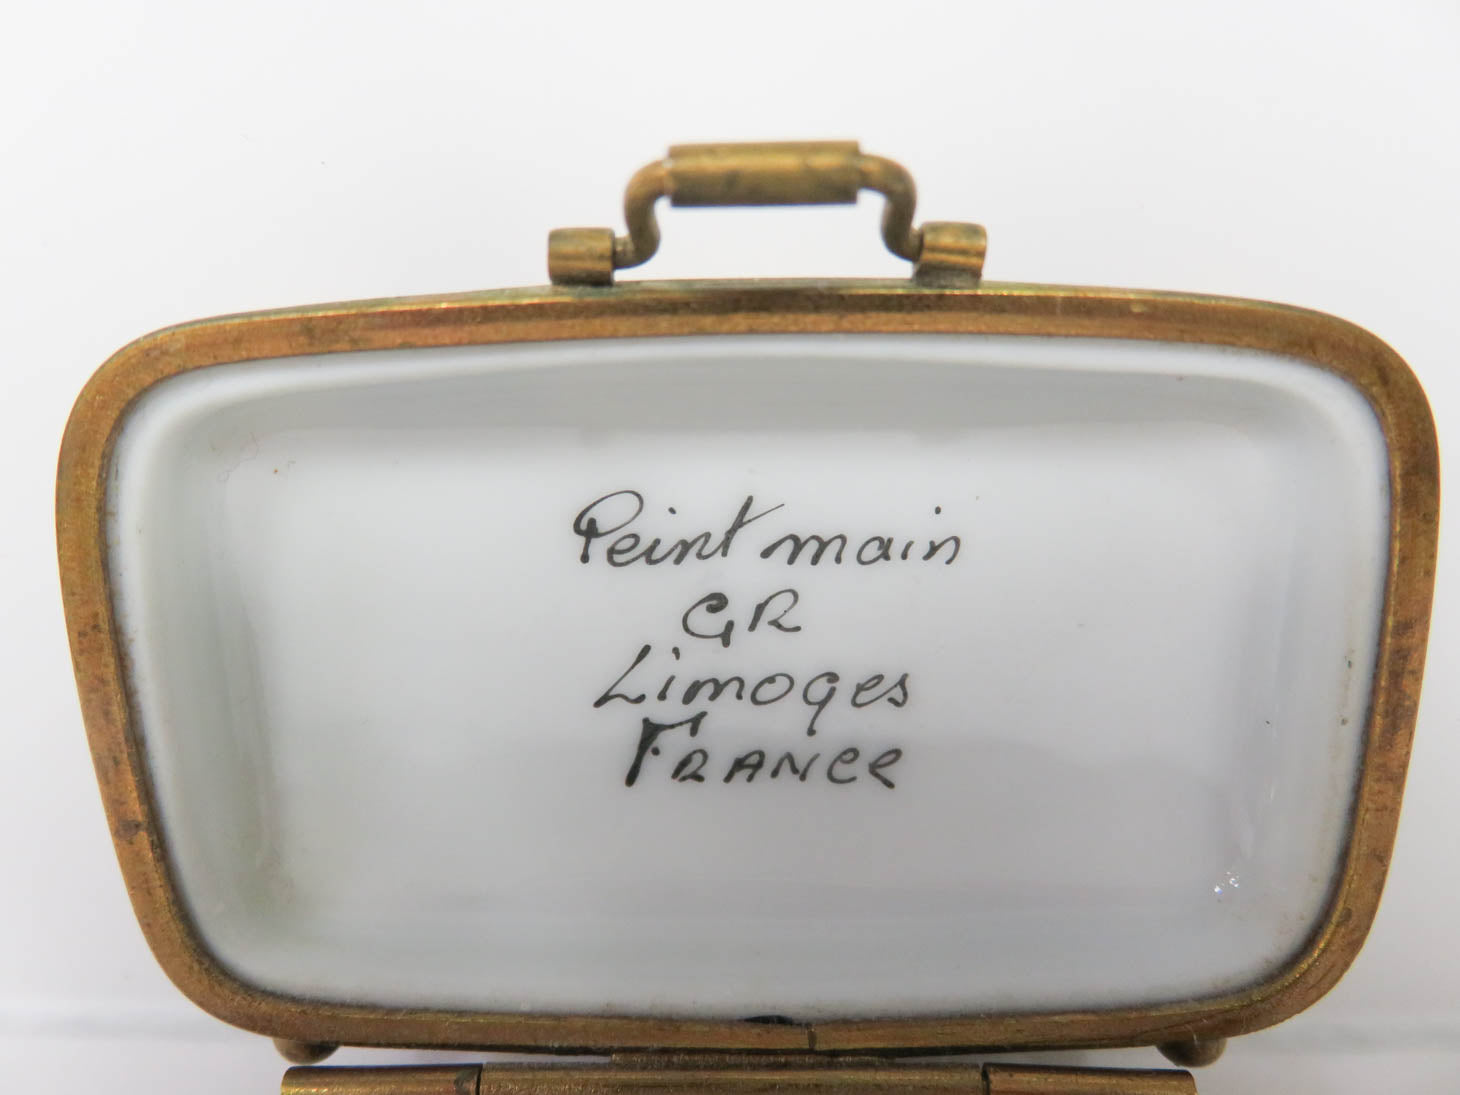 Peint main
GR
Limoges
FRANCE